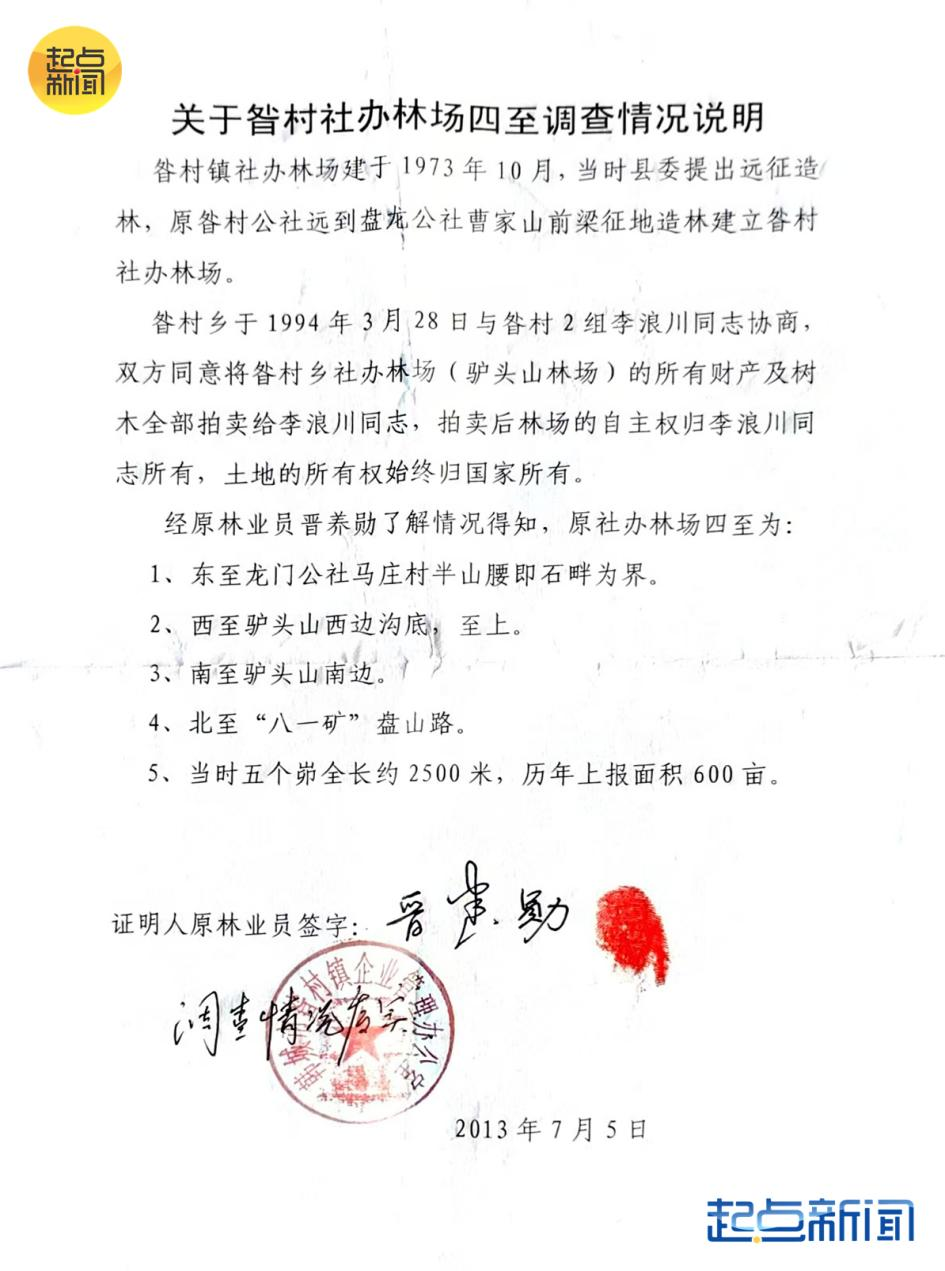 起点
新闻
关于昝村社办林场四至调查情况说明
昝村镇社办林场建于1973年10月，当时县委提出远征造
林，原昝村公社远到盘龙公社曹家山前梁征地造林建立昝村
社办林场。
昝村乡于1994年3月28日与昝村2组李浪川同志协商，
双方同意将昝村乡社办林场（驴头山林场）的所有财产及树
木全部拍卖给李浪川同志，拍卖后林场的自主权归李浪川同
志所有，土地的所有权始终归国家所有。
经原林业员晋养勋了解情况得知，原社办林场四至为：
1、东至龙门公社马庄村半山腰即石畔为界。
2、西至驴头山西边沟底，至上。
3、南至驴头山南边。
4、北至“八一矿”盘山路。
5、当时五个峁全长约2500米，历年上报面积600亩。
证明人原林业员签字：晋养勋
韩城市昝村镇企业管理办公室
调查情况属实
2013年7月5日
起点新闻